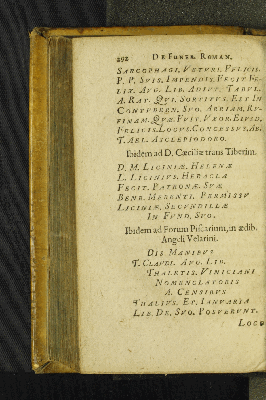 292 DE FUNER. ROMAN.
SARCOPHAGI, VETURI. FELICIS.
P. P. SUIS. IMPENDIS. FECIT. FE-
LIX. AUG. LIB. ADIUT. TABUL.
A. RAT. QUI. SORTITUS. EST IN
CONTUBERN. SUO. ARRIAM. RU-
FINAM. QUÆ. FUIT. UXOR. EIUSD.
FELICIS. LOCUS. CONCESSUS. AB.
T. AEL. ASCLEPIODORO.
Ibidem ad D. Cæciliæ trans Tiberim.
D. M. LICINIÆ. HELENÆ
L. LICINIUS. HERACLA
FECIT. PATRONÆ. SUÆ
BENE. MERENTI. PERMISSU
LICINIÆ. SECUNDILLÆ
IN FUND. SUO.
Ibidem ad Forum Piscarium, in ædib.
Angeli Velarini.
DIS MANIBUS
T. CLAUDI. AUG. LIB.
THALETIS. VINICIANI
NOMENCLATORIS
A. CENSIBUS
THALLUS. ET. IANUARIA
LIB. DE. SUO. POSUERUNT.
LOCU